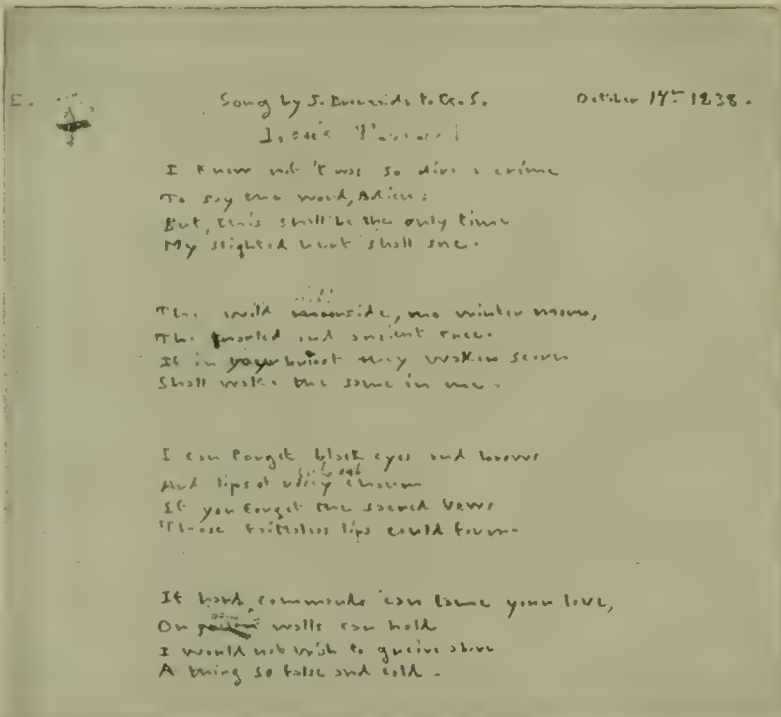 E.
Song by J. Brenzaida to G.S. October 17th 1838.
Love's Farewell
I knew not 't was so dire a crime
To say the word, Adieu:
But, this shall be the only time
My slighted heart shall sue.
The wild moorside, the winter morn,
The gnarled and ancient tree.
If in your breast they waken scorn
Shall wake the same in me.
I can forget black eyes and brows
And lips of rosy charm
If you forget the sacred vows
Those faithless lips could form
If hard commands can tame your love,
Or walls can hold
I would not wish to grieve above
A thing so false and cold.